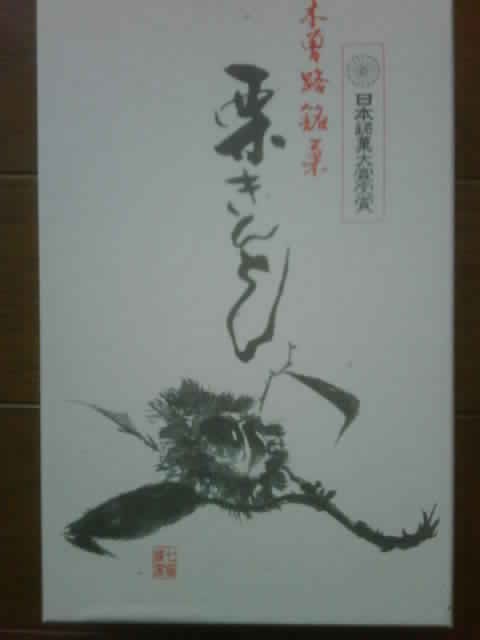 日本銘菓大賞受賞
木曽路銘菓
栗きんとん